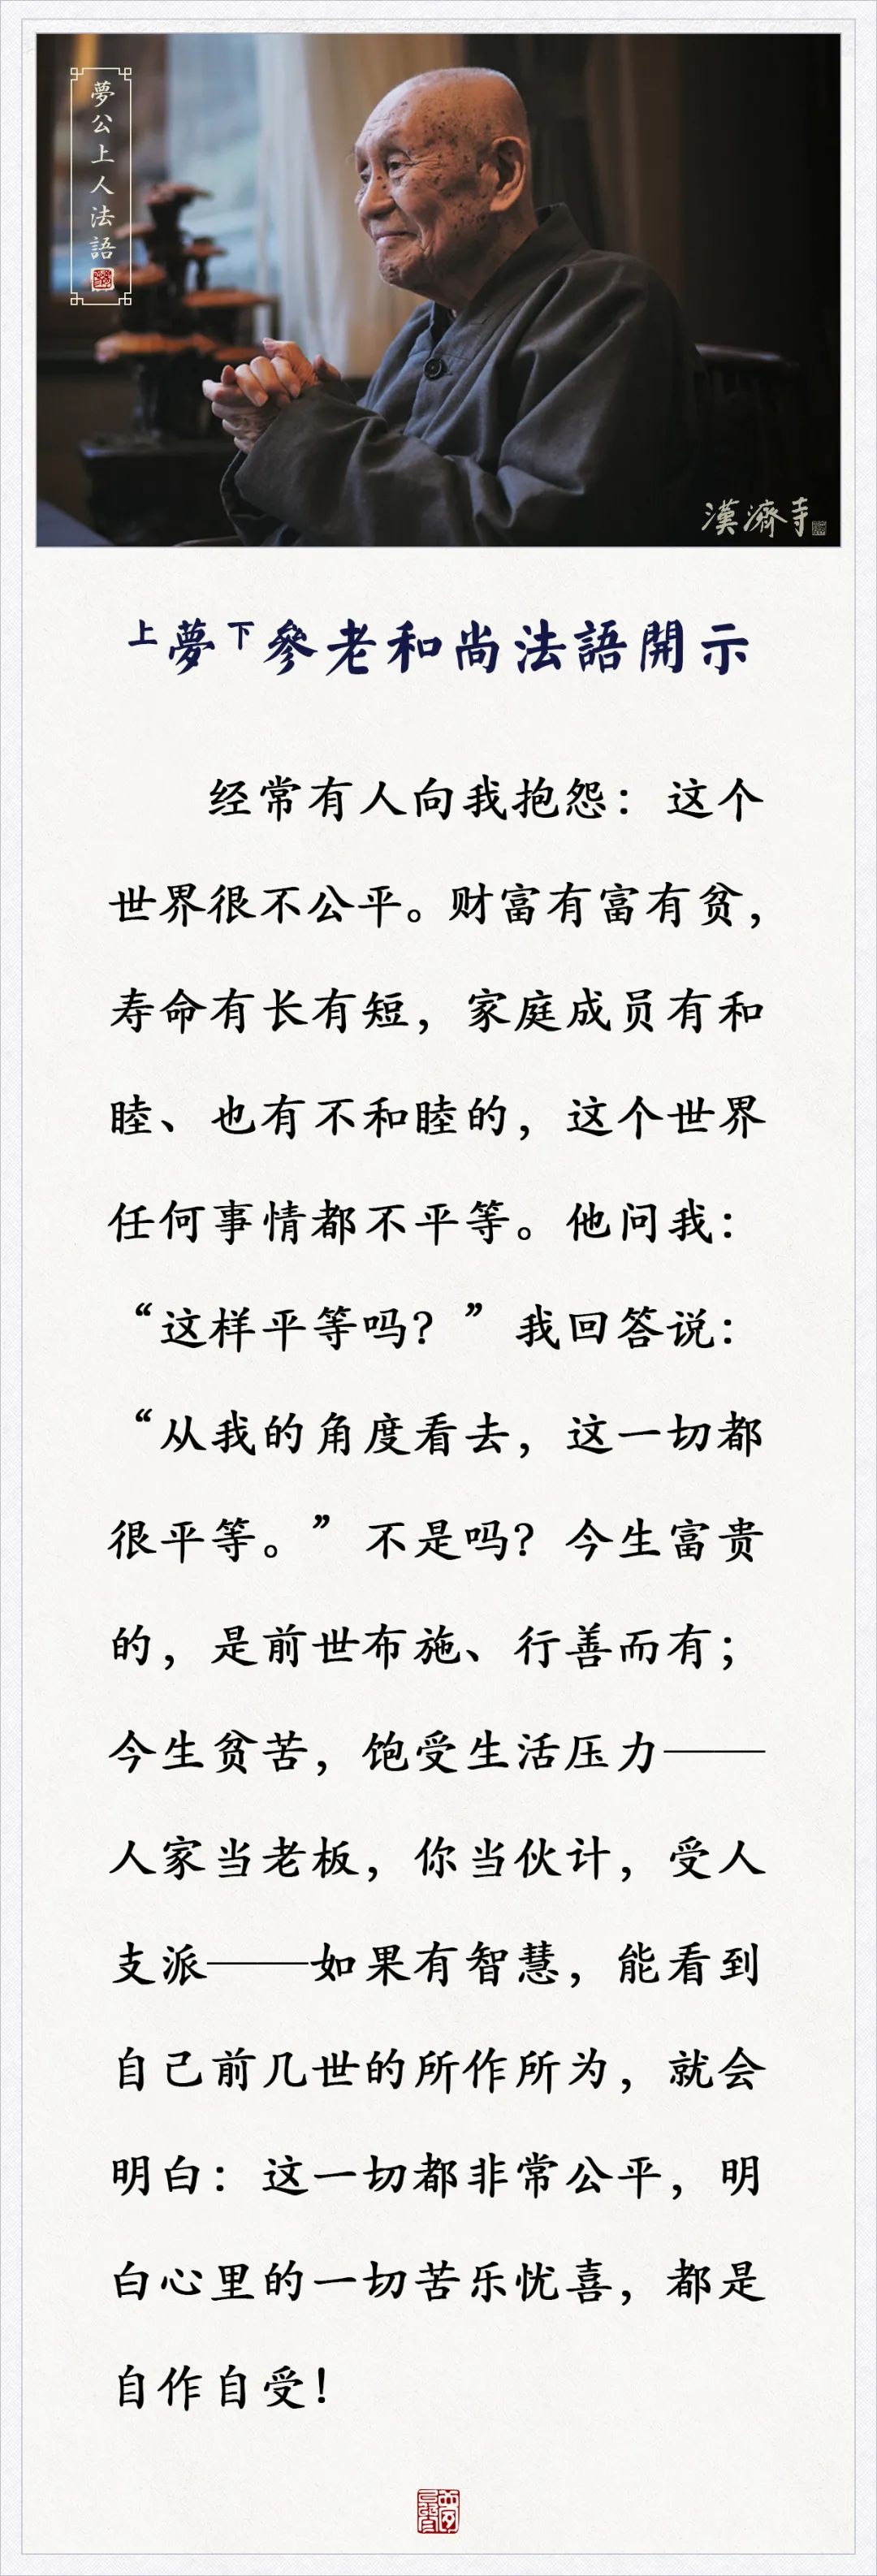 夢公上人法語
漢濟寺
上夢下參老和尚法語開示
经常有人向我抱怨：这个
世界很不公平。财富有富有贫，
寿命有长有短，家庭成员有和
睦、也有不和睦的，这个世界
任何事情都不平等。他问我：
“这样平等吗？”我回答说：
“从我的角度看去，这一切都
很平等。”不是吗？今生富贵
的，是前世布施、行善而有；
今生贫苦，饱受生活压力——
人家当老板，你当伙计，受人
支派——如果有智慧，能看到
自己前几世的所作所为，就会
明白：这一切都非常公平，明
白心里的一切苦乐忧喜，都是
自作自受！